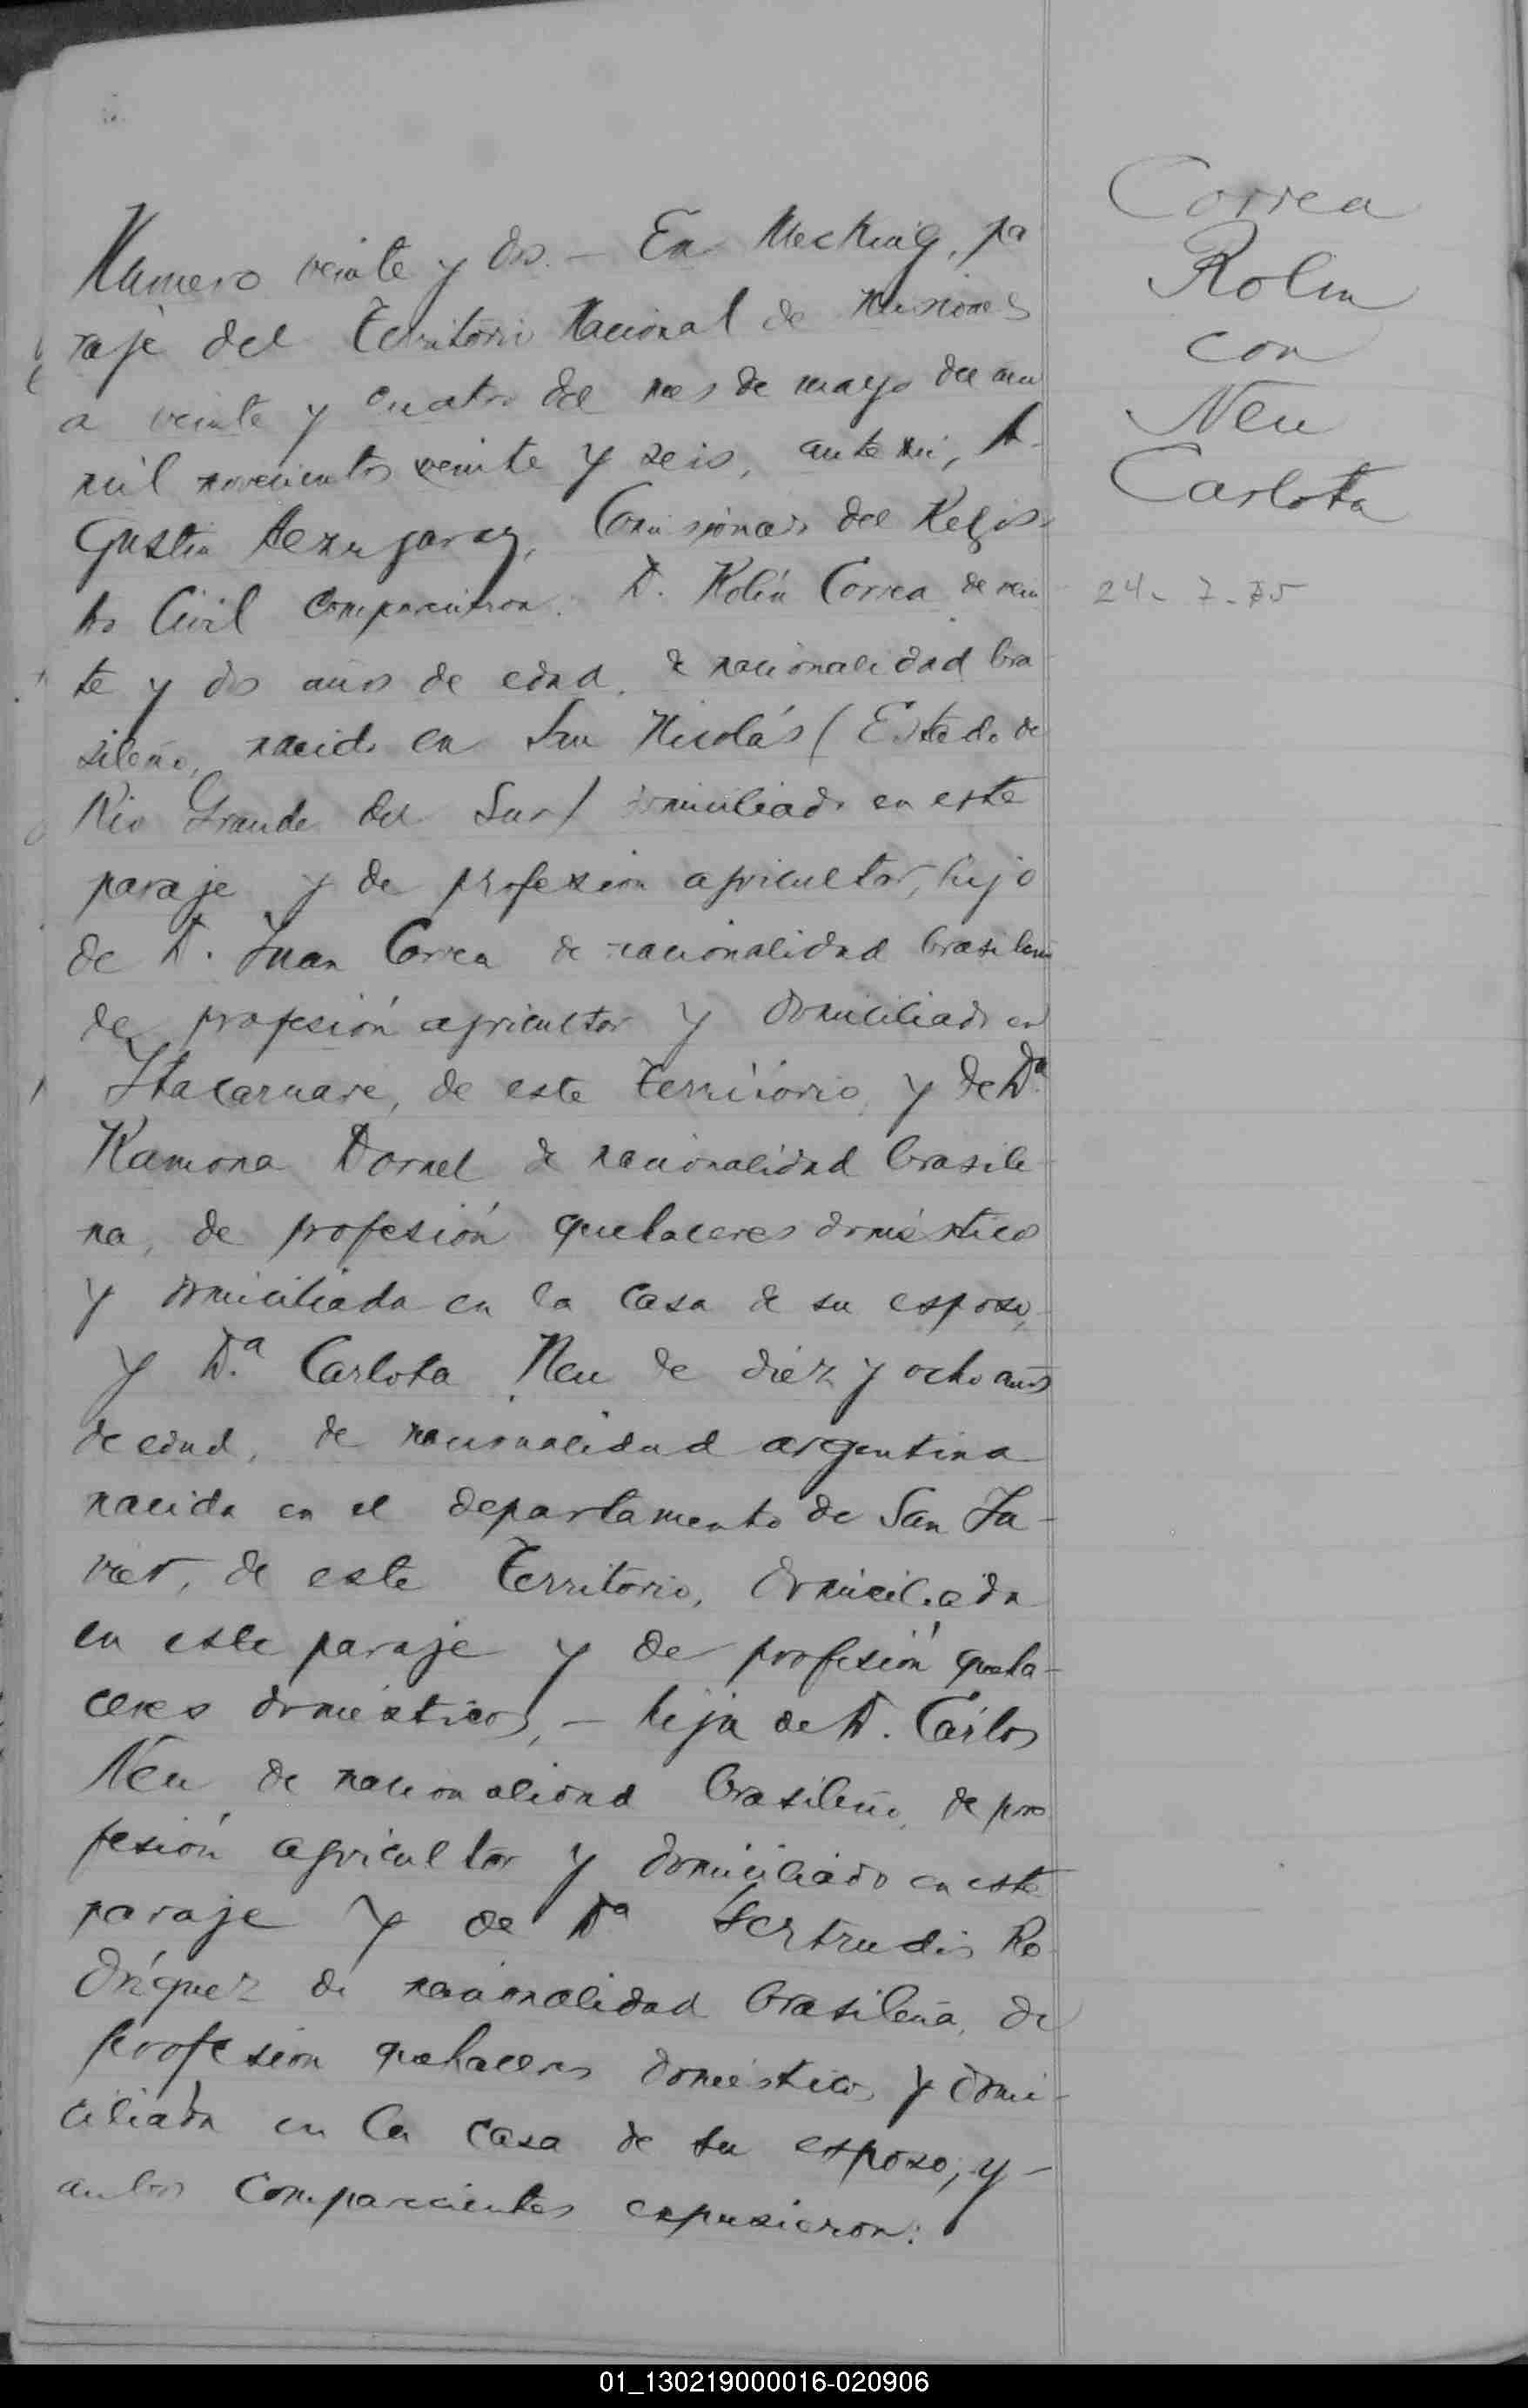 Numero veinte y dos. – En Mecking, pa
raje del Territorio Nacional de Misiones
a veinte y cuatro del mes de mayo del año
mil novecientos veinte y seis, ante mi, A-
gustin, Comisionado del Regis-
tro Civil comparecieron: D. Rolín Correa de vein
te y dos años de edad, de nacionalidad bra
sileño, nacido en San Nicolás (Estado de
Rio Grande del Sur) domiciliado en este
paraje y de profesion agricultor, hijo
de D. Juan Correa de nacionalidad brasileño
de profesión agricultor y domiciliado en
Itacaruare, de este Territorio, y de Dª
Ramona Dornel de nacionalidad brasile
na, de profesión quehaceres domésticos
y domiciliada en la casa de su esposo,
y D.ª Carlota Neu de diéz y ocho años
de edad, de nacionalidad argentina
nacida en el departamento de San Ja-
vier, de este Territorio, domiciliada
en este paraje y de profesión queha-
ceres domésticos, – hija de D. Cárlos
Neu de nacionalidad brasileño, de pro
fesión agricultor y domiciliado en este
paraje y de Dª Gertrudis Ro
dríguez de nacionalidad brasileña, de
profesion quehaceres domésticos y domi-
ciliada en la casa de su esposo; y –
ambos comparecientes expusieron:
Correa
Rolin
con
Neu
Carlota
24-7-75
01_130219000016-020906